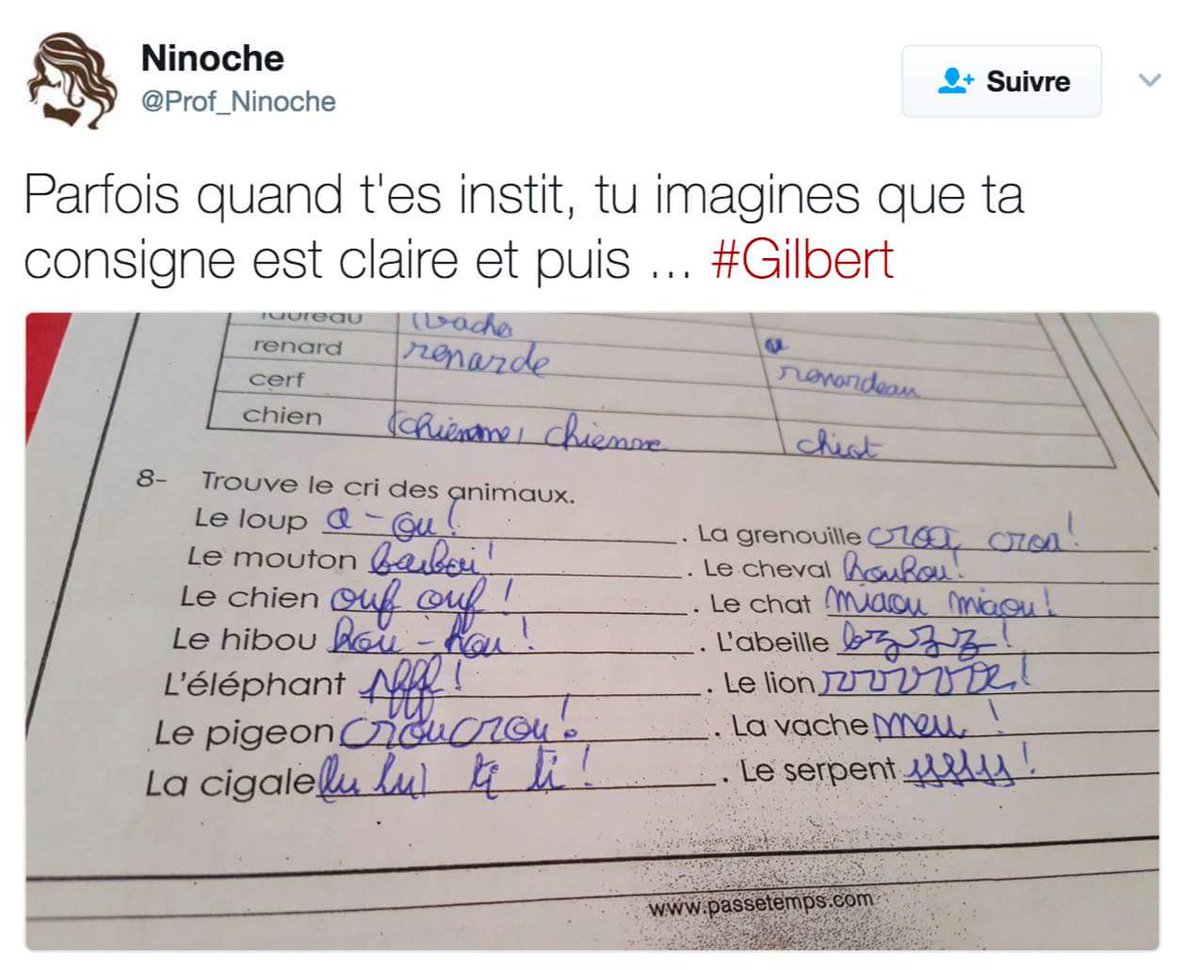 Ninoche
@Prof_Ninoche
Suivre
Parfois quand t'es instit, tu imagines que ta
consigne est claire et puis ... #Gilbert
taureau (vache
renard renarde renardeau
cerf
chien (chienne) chienne chiot
8- Trouve le cri des animaux.
Le loup a - ou ! . La grenouille croa, croa! .
Le mouton ! . Le cheval !
Le chien ouf ouf ! . Le chat miaou miaou!
Le hibou hou - hou ! . L'abeille bzzzz !
L'éléphant ! . Le lion !
Le pigeon croucrou! . La vache meu !
La cigale (lu lu) ti ti ! . Le serpent !
www.passetemps.com